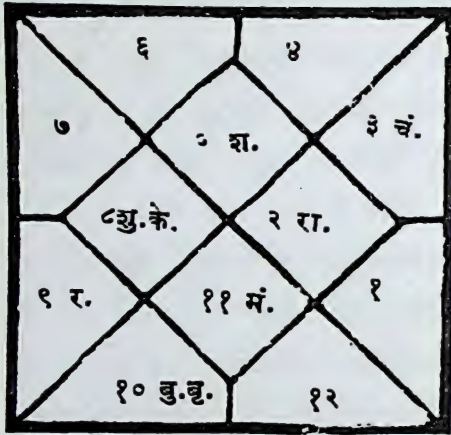 ६ ४
७ श. ३ चं.
८शु.के. २ रा.
९ र. ११ मं. १
१० बु.बृ. १२